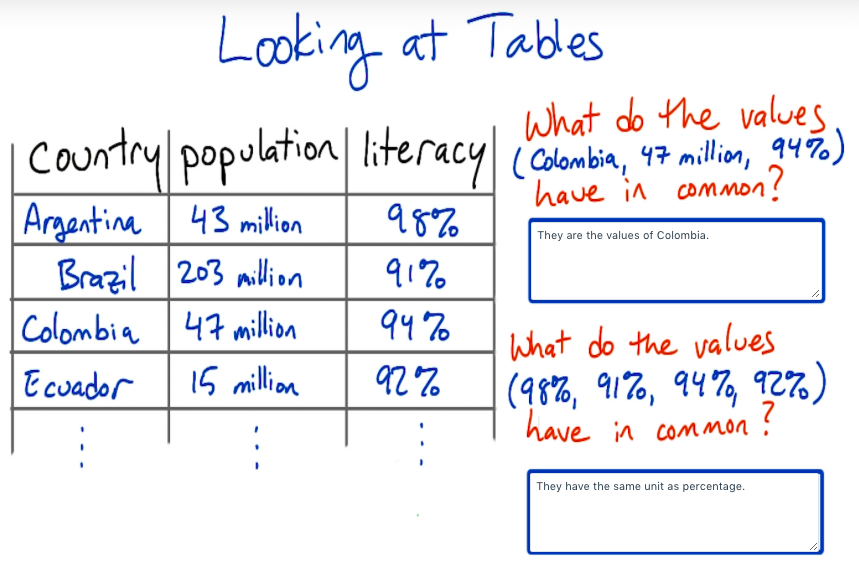 Looking at Tables
country population literacy
Argentina 43 million 98%
Brazil 203 million 91%
Colombia 47 million 94%
Ecuador 15 million 92%
What do the values
(Colombia, 47 million, 94%)
have in common?
They are the values of Colombia.
What do the values
(98%, 91%, 94%, 92%)
have in common?
They have the same unit as percentage.